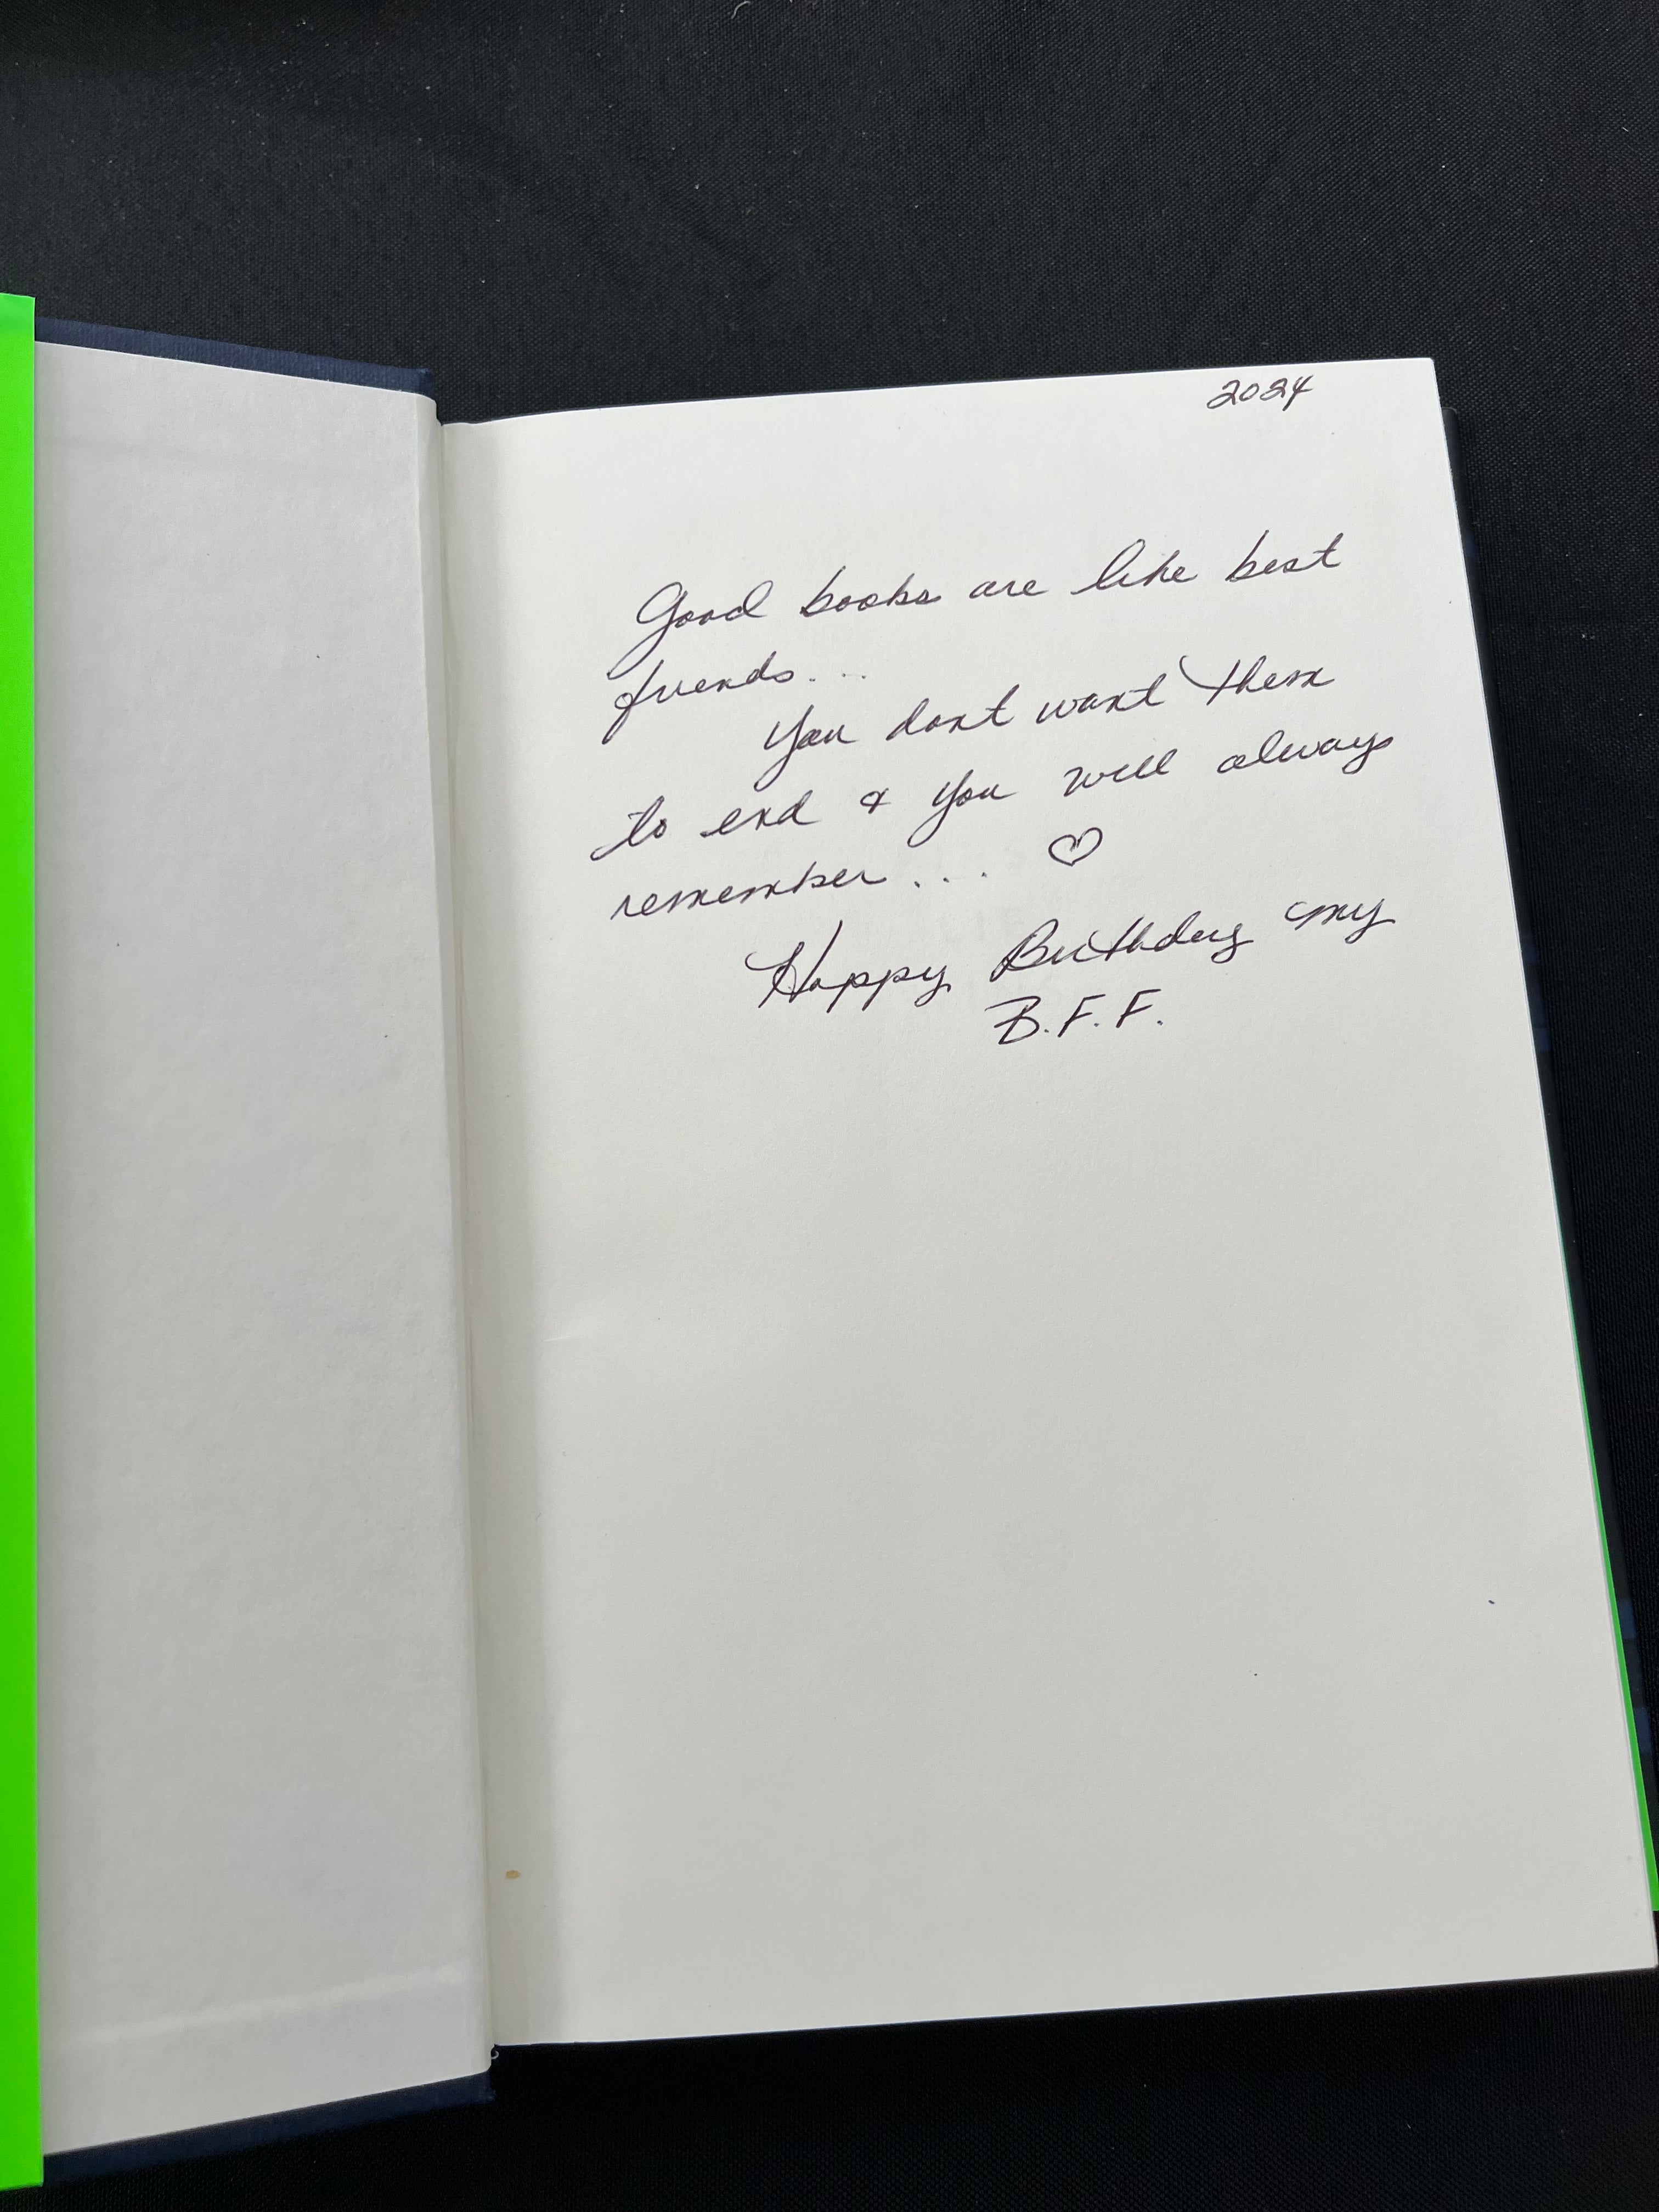 2024
Good books are like best
friends...
You dont want them
to end & you will always
remember... ♡
Happy Birthday my
B.F.F.